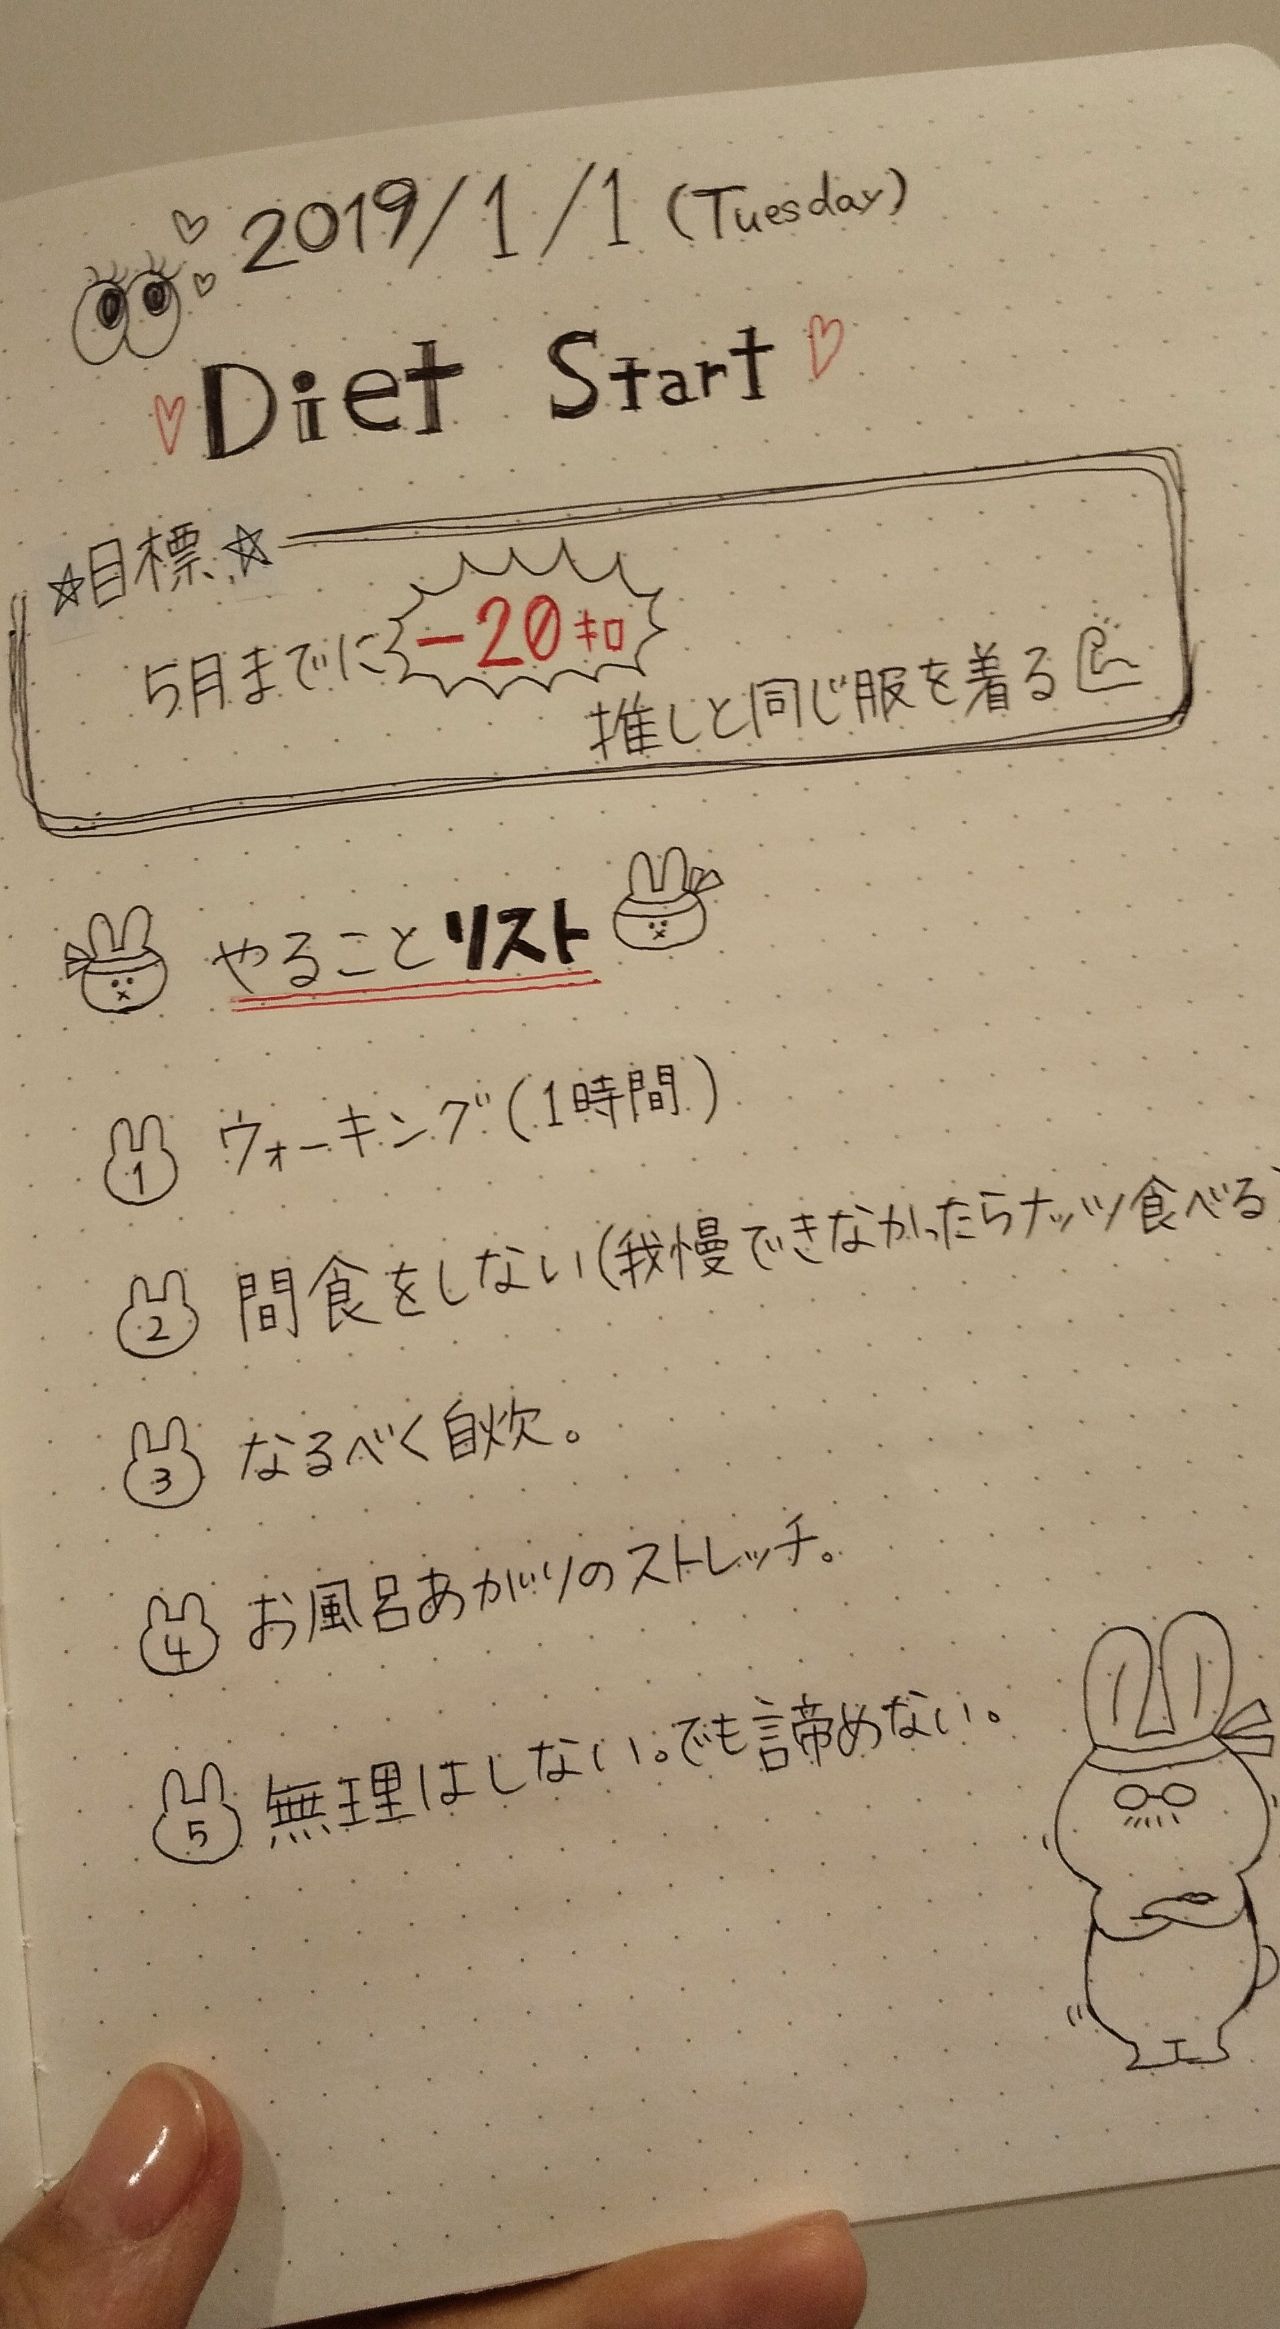 2019/1/1 (Tuesday)
Diet Start
☆目標☆
5月までに-20キロ
推しと同じ服を着る
やることリスト
1 ウォーキング(1時間)
2 間食をしない(我慢できなかったらナッツ食べる)
3 なるべく自炊。
4 お風呂あがりのストレッチ。
5 無理はしない。でも諦めない。